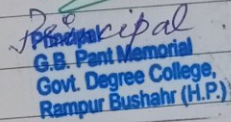 Principal
Principal
G.B. Pant Memorial
Govt. Degree College,
Rampur Bushahr (H.P.)